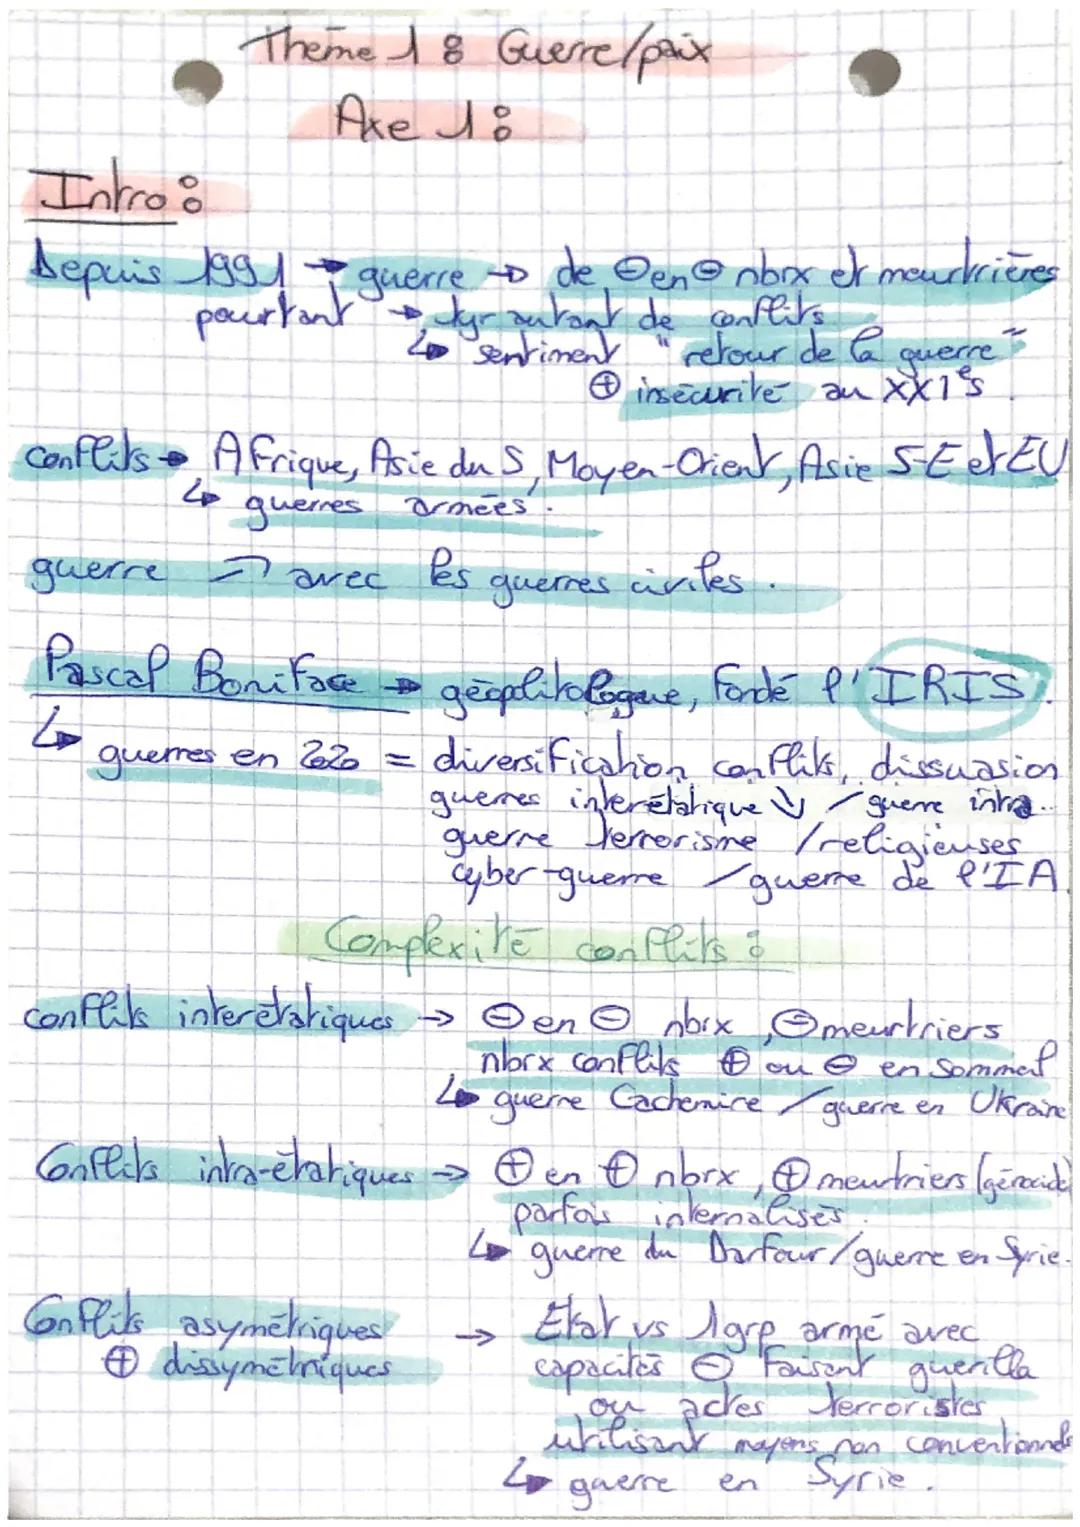 Thème 1 : Guerre/paix
Axe 1 :
Intro :
Depuis 1991 → guerre → de ⊖ en ⊖ nbrx et meurtrières
pourtant → tjr autant de conflits
↳ sentiment "retour de la guerre"
⊕ insécurité au XXIe s.
conflits → Afrique, Asie du S, Moyen-Orient, Asie S-E et EU
↳ guerres armées.
guerre ↗ avec les guerres civiles.
Pascal Boniface → géopolitologue, fondé l'IRIS.
↳ guerres en 2020 = diversification conflits, dissuasion
guerres interétatique ↘ / guerre intra..
guerre terrorisme / religieuses
cyber-guerre / guerre de l'IA.
Complexité conflits :
conflits interétatiques → ⊖ en ⊖ nbrx, ⊖ meurtriers
nbrx conflits ⊕ ou ⊖ en sommeil
↳ guerre Cachemire / guerre en Ukraine
Conflits intra-étatiques → ⊕ en ⊕ nbrx, ⊕ meurtriers (génocide)
parfois internalisés.
↳ guerre du Darfour / guerre en Syrie.
Conflits asymétriques → Etat vs 1 grp armé avec
⊕ dissymétriques capacités ⊖ faisant guerilla
ou actes terroristes
utilisant moyens non conventionnels
↳ guerre en Syrie.